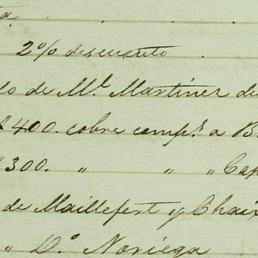 ta
2% descuento
lo de Mr. Martinez de
$400. cobre comp.s a B
"300. " " " Cap
de Maillefert y Chaix
" D.o Noriega